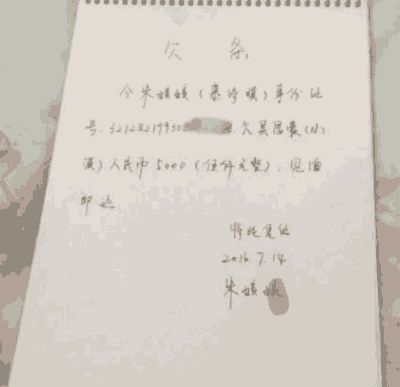 欠条
今朱媛媛(秦婷媛)身份证
号:3212821995,欠吴
人民币5000(伍仟元整),见
即还
特此见证
2016.7.14
朱媛媛